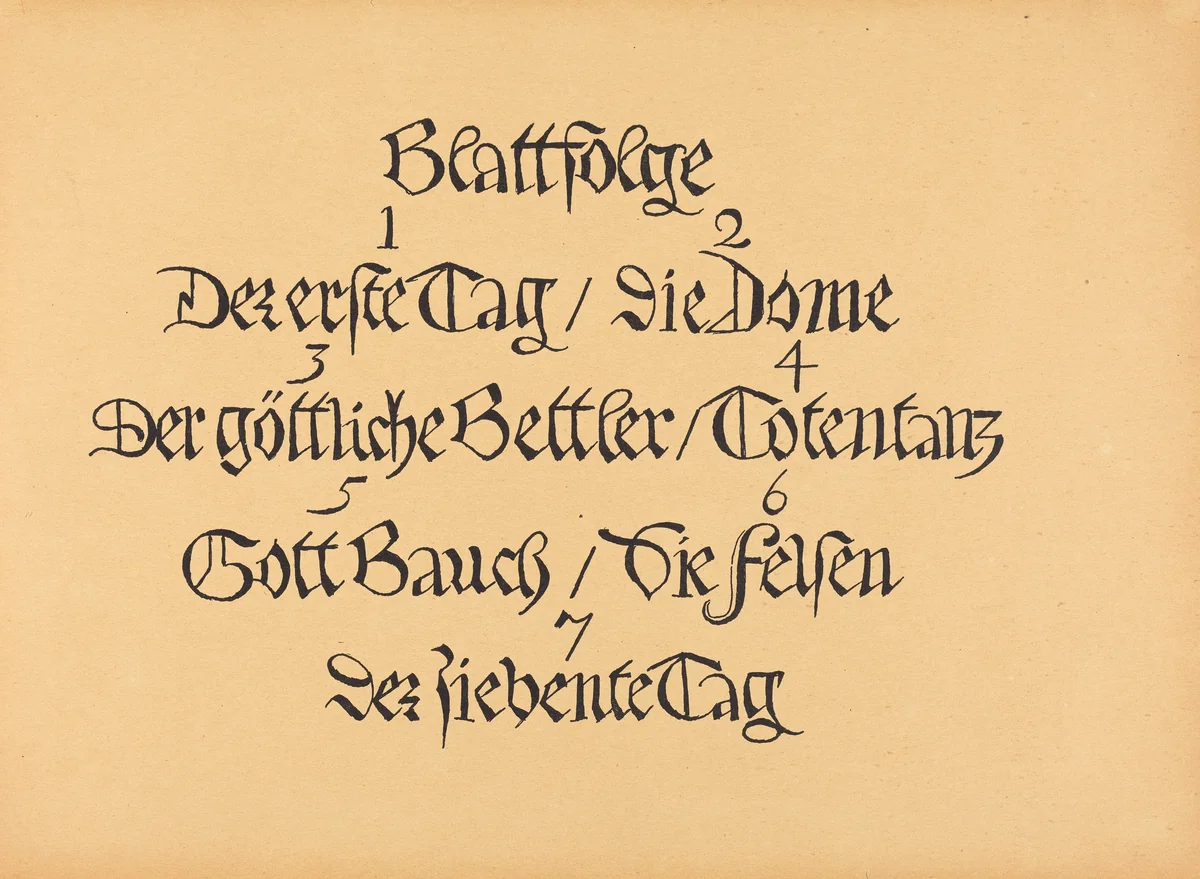 Blattfolge
1 2
Der erſte Tag / Die Dome
3 4
Der göttliche Bettler / Totentanz
5 6
Gott Bauch / Die Felſen
7
Der ſiebente Tag